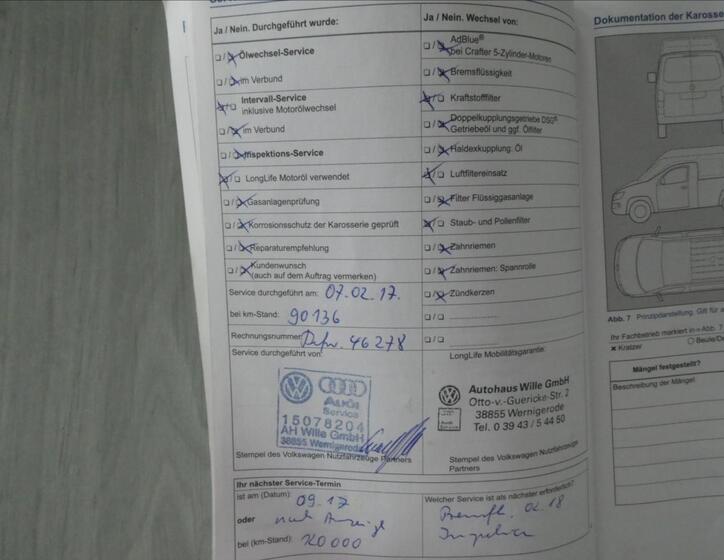 Ja / Nein. Durchgeführt wurde:
Ölwechsel-Service
im Verbund
Intervall-Service
inklusive Motorölwechsel
im Verbund
Inspektions-Service
LongLife Motoröl verwendet
Gasanlagenprüfung
Korrosionsschutz der Karosserie geprüft
Reparaturempfehlung
Kundenwunsch
(auch auf dem Auftrag vermerken)
Service durchgeführt am: 07.02.17.
bei km-Stand: 90136
Rechnungsnummer: 46278
Service durchgeführt von:
Audi
Service
15078204
AH Wille GmbH
38855 Wernigerode
Stempel des Volkswagen Nutzfahrzeuge Partners
Ja / Nein. Wechsel von:
AdBlue®
bei Crafter 5-Zylinder-Motoren
Bremsflüssigkeit
Kraftstofffilter
Doppelkupplungsgetriebe DSG®
Getriebeöl und ggf. Ölfilter
Haldexkupplung: Öl
Luftfiltereinsatz
Filter Flüssiggasanlage
Staub- und Pollenfilter
Zahnriemen
Zahnriemen: Spannrolle
Zündkerzen
LongLife Mobilitätsgarantie:
Autohaus Wille GmbH
Otto-v.-Guericke-Str. 2
38855 Wernigerode
Tel. 0 39 43 / 5 44 50
Stempel des Volkswagen Nutzfahrzeuge
Partners
Ihr nächster Service-Termin
ist am (Datum): 09.17
oder nach Anzeige
bei (km-Stand): 120000
Welcher Service ist als nächster erforderlich?
02.18
Dokumentation der Karosse
Abb. 7 Prinzipdarstellung. Gilt für a
Ihr Fachbetrieb markiert in Abb. 7
Kratzer
Beule/De
Mängel festgestellt?
Beschreibung der Mängel